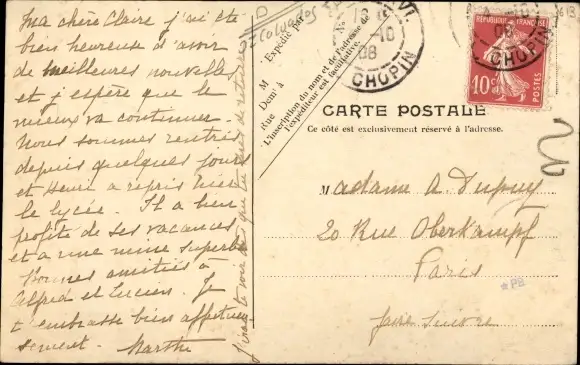 Ma chère Claire j'ai été
bien heureuse d'avoir
de meilleures nouvelles
et j'espère que le
mieux va continuer.
Nous sommes rentrés
depuis quelques jours
et Henri a repris hier
le lycée. Il a bien
profité de ses vacances
et a une mine superbe
Bonnes amitiés à
Alfred et Lucien. Je
t'embrasse bien affectueu
sement. Marthe
J'irai te voir dès que tu seras de retour
Expédié par
M
Demt à
Rue
L'inscription du nom et de l'adresse de
l'expéditeur est facultative.
18
10
08
CHOPIN
RÉPUBLIQUE FRANÇAISE
10c
POSTES
08
CHOPIN
CARTE POSTALE
Ce côté est exclusivement réservé à l'adresse.
20
Madame A. Dupuy
20 Rue Oberkampf
Paris
faire suivre
PB